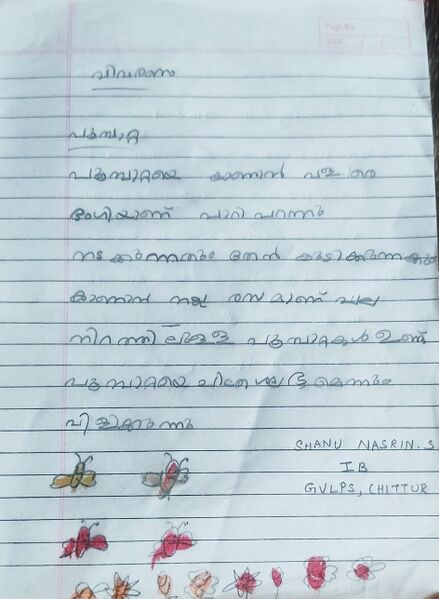 Page No.
Date
വിവരണം
പൂമ്പാറ്റ
പൂമ്പാറ്റയെ കാണാൻ വളരെ
ഭംഗിയാണ് പാറി പറന്നു
നടക്കുന്നതും തേൻ കുടിക്കുന്നതും
കാണാൻ നല്ല രസമാണ് പല
നിറത്തിലുള്ള പൂമ്പാറ്റകൾ ഉണ്ട്
പൂമ്പാറ്റയെ ചിത്രശലഭമെന്നും
വിളിക്കുന്നു
SHANU NASRIN.S
IB
GVLPS, CHITTUR